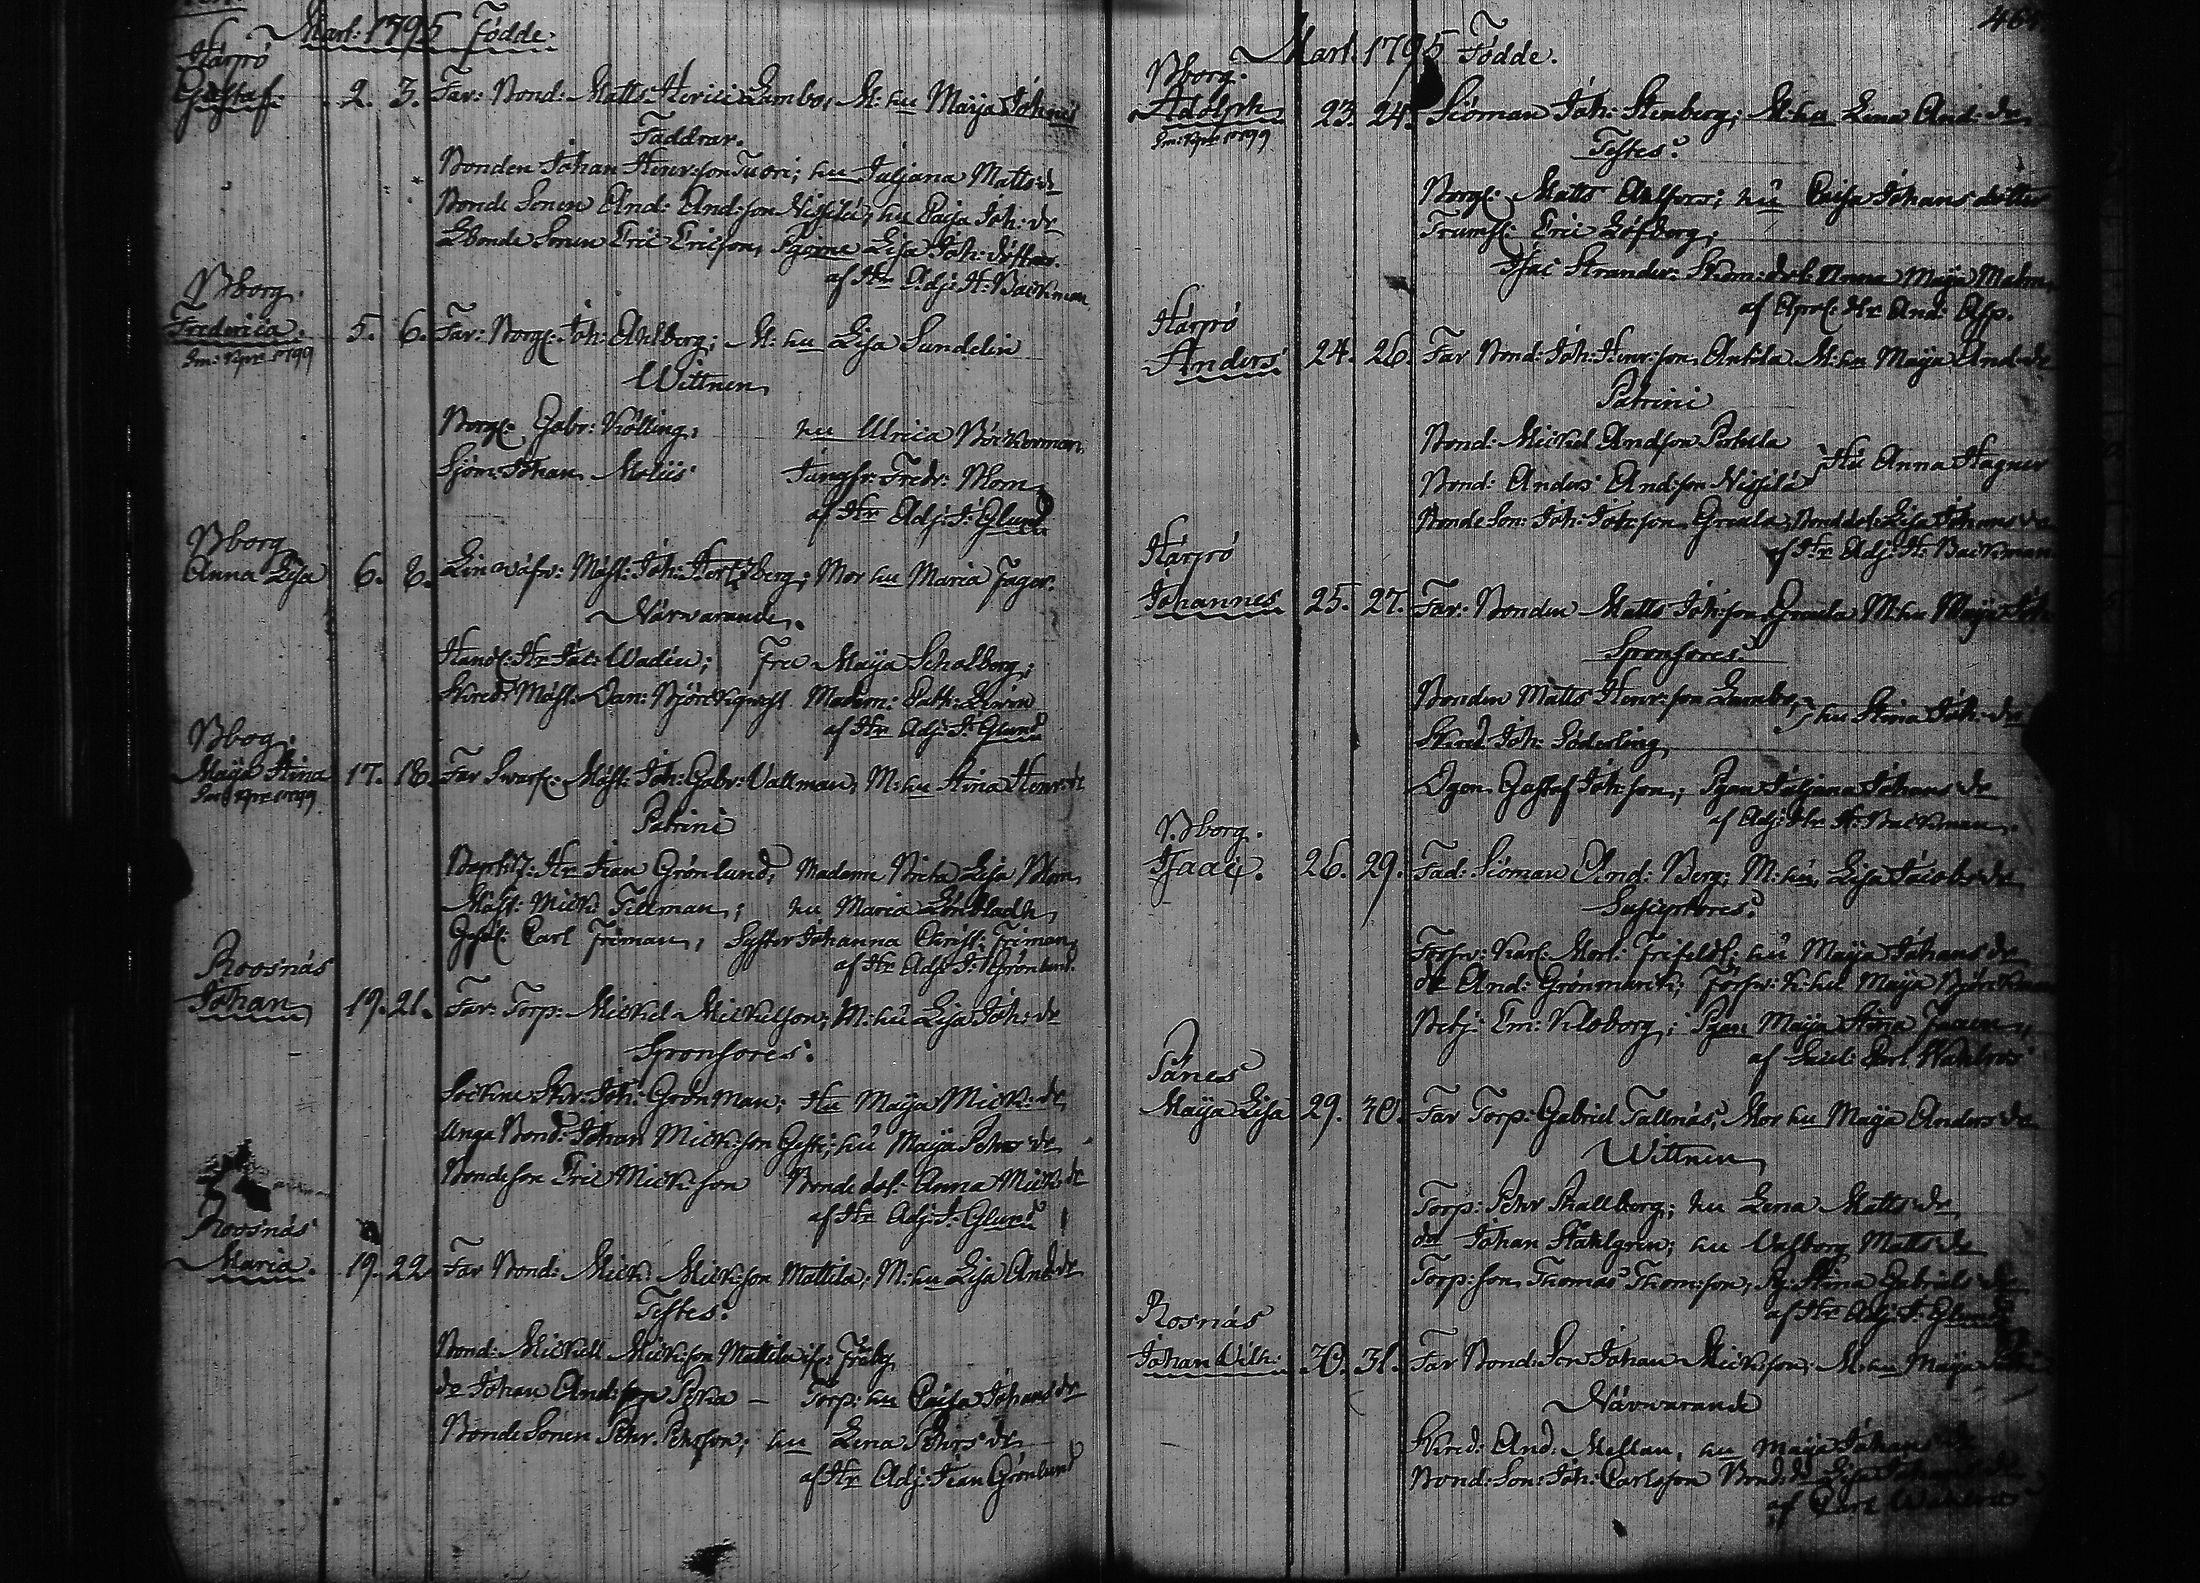 Mart: 1795 Födde.
Härpö
Gustaf. 2. 3. Far: Bond: Matts Henrics Lambo, M: hu Maija Johans
Faddrar.
Bonden Johan Henr:son Tuori; hu Juljana Matts dr
Bonde Sonen And: And:son Nissilä; hu Caisa Joh: dr
Bonde Sonen Eric Ericson, Pigorne Lisa Joh: dotter.
af Hr Adj: H: Backman
Bborg.
Frederica. 5. 6. Far: Borgl: Joh: Ahlberg; M: hu Lisa Sundelin
1799
Wittnen
Borgl: Gabr: Kölling; hu Ulrica Böckerman
Sjöm: Johan Moliis Jungfr: Fredr: Blom
af Hr Adj: J: Glund
Bborg
Anna Lisa 6. 8. Linwäfv: Mäst: Joh: Hertzberg; Mor hu Maria Fager.
Närwarande.
Handl: Hr Jac: Wadén; Fru Maija Schalberg;
Skredd: Mäst: Dan: Björckqwist Madam: Cath: Lewin
af Hr Adj: J: Glund
Bborg.
Maija Stina 17. 18. Far Swarf: Mäst: Joh: Gabr: Vallman, M: hu Stina Henr: dr
1799
Patrini
Hr Jean Grönlund; Madame Brita Lisa Blom
Mäst: Mick: Tillman; hu Maria Lönblad
Gesäl: Carl Friman; Syster Johanna Christ: Friman
af Hr Adj: J: Grönlund.
Roosnäs
Johan 19. 21. Far: Torp: Mickel Mickelson; M: hu Lisa Joh: dr
Sponsores.
Sockne Skr: Joh: Grönman; Hu Maija Mick: dr
Unga Bond: Johan Mick:son Gesti; hu Maija Pehrs dr
Bondeson Eric Mick:son Bonde dot: Anna Mick: dr
af Hr Adj: J: Glund
Roosnäs
Maria. 19. 22. Far Bond: Mick: Mick:son Mattila; M: hu Lisa And: dr
Testes.
Bond: Mickell Mick:son Mattila
dr Johan And:son Pirka — Torp: hu Caisa Johans dr
Bonde Sonen Pehr Pehrson; hu Lena Pehrs dr
af Hr Adj: Jean Grönlund
Mart: 1795 Födde.
Bborg.
Adolph 23. 24. Siöman Joh: Stenberg; M: hu Lena And: dr
1799
Testes.
Borgl: Matts Ahlfors; hu Caisa Johans dotter
Trumsl: Eric Löfberg;
Isac Strander: Skom: dot: Anna Maija Malm
af Hr And: Asp.
Härpö
Anders 24. 26. Far Bond: Joh: Henr:son Anttila M: hu Maija And: dr
Patrini
Bond: Mickel Andson Perkila
Bond: Anders And:son Nissilä } Hu Anna Hagner
Bonde Son: Joh: Joh:son Greula; Bonddot: Lisa Johans dr
af Hr Adj: H: Backman
Härpö
Johannes 25. 27. Far: Bonden Matts Joh:son Greula M: hu Maija Joh:
Sponsores.
Bonden Matts Henr:son Lambo } hu Stina Joh: dr
Skred: Joh: Söderling
Dgen Gustaf Joh:son; Pgan Juljana Johans dr
af Adj: Hr H: Backman.
Bborg.
Isaac. 26. 29. Fad: Siöman And: Berg; M: hu Lisa Jacobs dr
Susceptores.
Försw: Karl: Mort: Frifeldt; hu Maija Johans dr
dr And: Grönmarck; Försw: K: hu Maija Björckman
Betj: Em: Kiloborg; Pgan Maija Stina
af Carl Wahlroos
Pånes
Maija Lisa 29. 30. Far Torp: Gabriel Tallnäs, Mor hu Maija Anders dr
Wittnen
Torp: Pehr Skallberg; hu Lena Matts dr
dr Johan Ståhlgren; hu Valborg Matts dr
Torp: son Thomas Thom:son; Pg: Stina Gabriels dr
af Hr Adj: J: Glund
Rosnäs
Johan Wilh: 30. 31. Far Bond: Son Johan Mick:son; M: hu Maija
Närwarande
Skred: And: Mellan, hu Maija Johans dr
Bond: Son: Joh: Carlsson Bond: d: Lisa Johans dr
af Carl Wahlroos